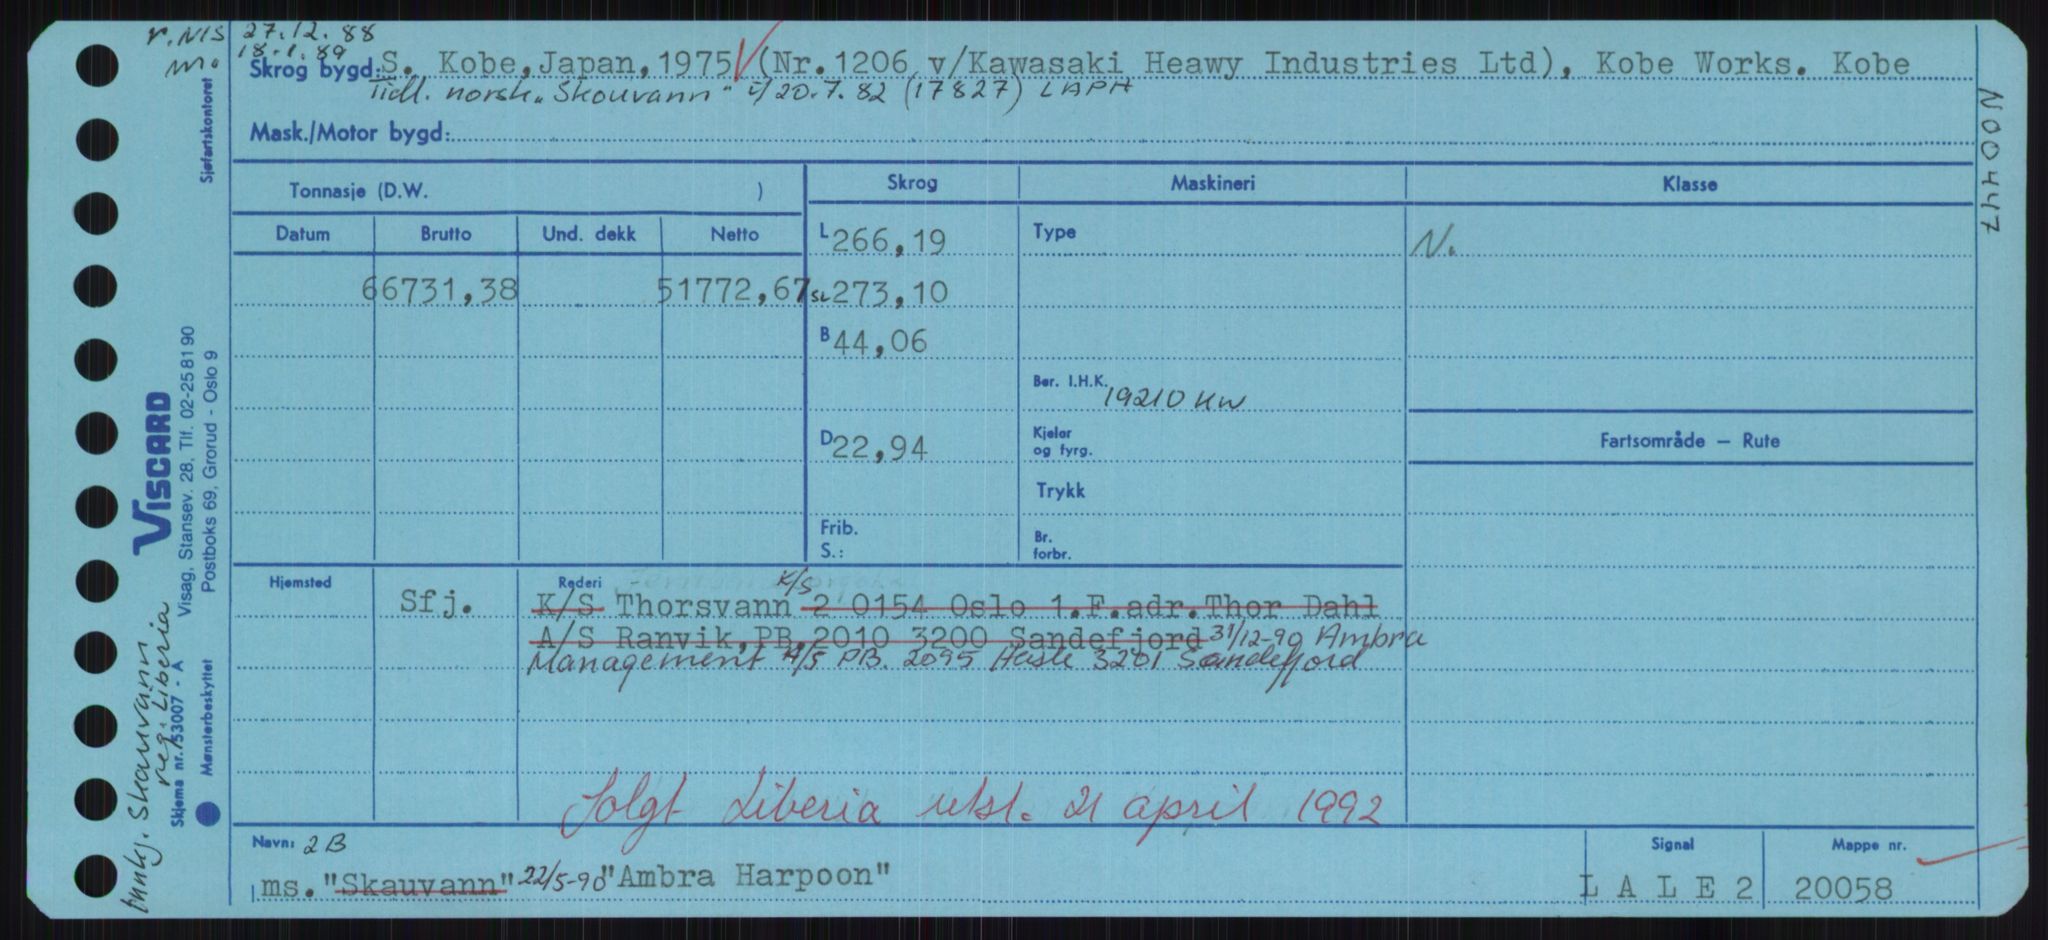 r. NIS 27.12.88
m. 18.1.89
Skrog bygd: S. Kobe, Japan, 1975 (Nr.1206 v/Kawasaki Heawy Industries Ltd), Kobe Works. Kobe
Tidl. norsk "Skouvann" i/20.7.82 (17827) LAPH
Mask./Motor bygd:
N00447
Tonnasje (D.W. )
Skrog Maskineri Klasse
Datum Brutto Und. dekk Netto
L 266,19 Type N.
66731,38 51772,67 SL 273,10
B 44,06
Ber. I.H.K. 19210 KW
D 22,94 Kjeler og fyrg.
Fartsområde – Rute
Trykk
Frib. S.: Br. forbr.
Hjemsted Rederi K/S
Sfj. K/S Thorsvann 2 0154 Oslo 1.F.adr.Thor Dahl
A/S Ranvik,PB.2010 3200 Sandefjord 31/12-90 Ambra
Management A/S PB. 2095 Hasle 3201 Sandefjord
Solgt Liberia utsl. 21 april 1992
Navn: 2B Signal Mappe nr.
ms. "Skauvann" 22/5-90 "Ambra Harpoon" L A L E 2 20058
Sjøfartskontoret
VISCARD
Visag, Stansev. 28, Tlf. 02-25 81 90
Postboks 69, Grorud - Oslo 9
Skjema nr. 53007 - A
Mønsterbeskyttet
Innkj. Skauvann
reg. Liberia